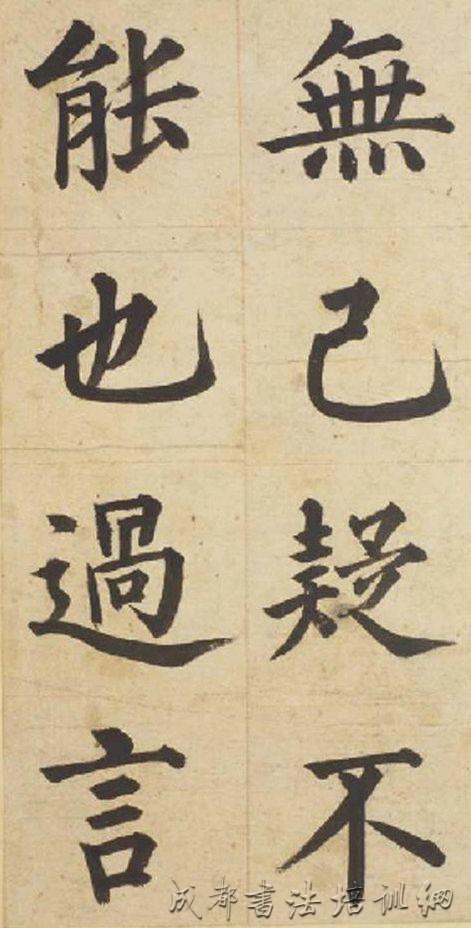 無己疑不
能也過言
成都書法培训網